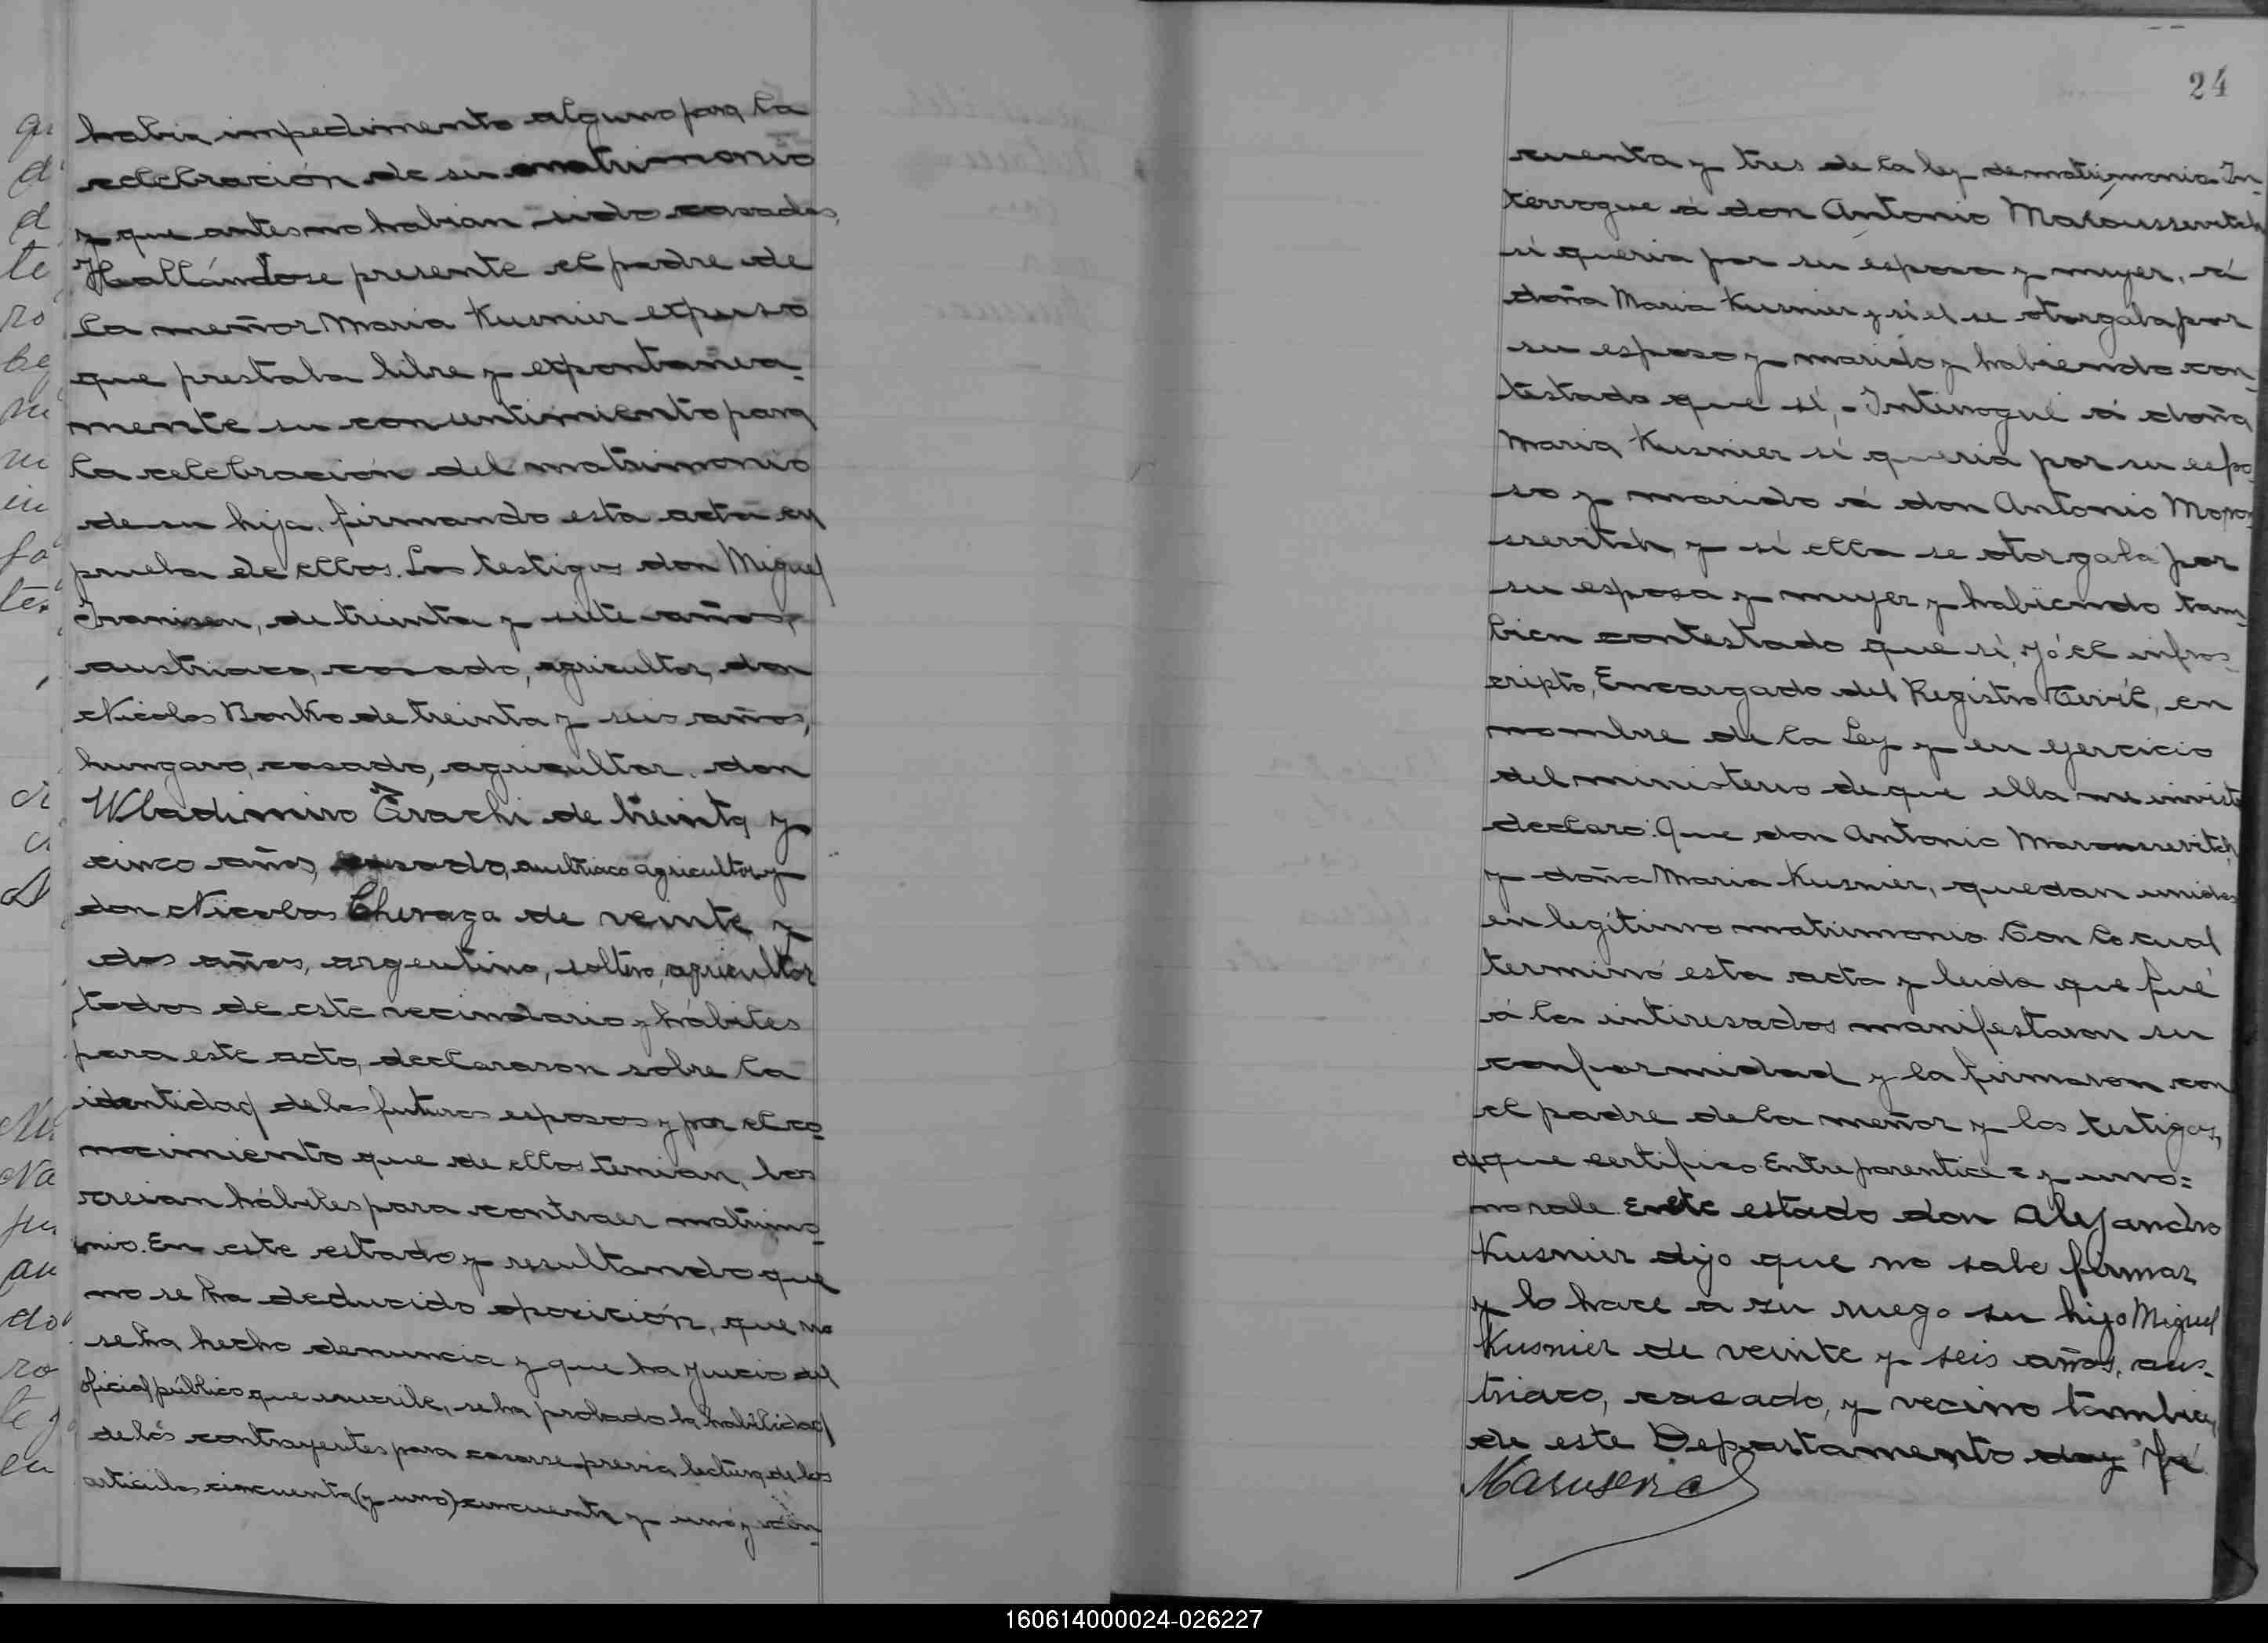 habia impedimento alguno para la
celebración de su matrimonio
y que antes no habian sido casados,
Hallándose presente el padre de
la meñor Maria Kusnier expuso
que prestaba libre y expontanea-
mente su consentimiento para
la celebración del matrimonio
de su hija, firmando esta acta en
prueba de ellos. Los testigos don Miguel
de treinta y siete años,
austriaco, casado, agricultor, don
Nicolas Bonko de treinta y seis años,
hungaro, casado, agricultor. don
Wladimiro Grachi de treinta y
cinco años, casado, austriaco agricultor y
don Nicolas Cheraga de veinte y
dos años, argentino, soltero, agricultor
todos de este vecindario y hábiles
para este acto, declararon sobre la
identidad de los futuros esposos y por el co-
nocimiento que de ellos tenian, los
creian hábiles para contraer matrimo-
nio. En este estado y resultando que
no se ha deducido oposición, que no
se ha hecho denuncia y que ha juicio del
oficial público que suscribe, se ha probado la habilidad
de lós contrayentes para casarse previa lectura de los
articulos cincuenta (y uno) cincuenta y uno y cin-
24
cuenta y tres de la ley de matrimonio. In-
terrogue á don Antonio Maroussevitch
si queria por su esposa y mujer, á
doña Maria Kusnier y si el se otorgaba por
su esposo y marido y habiendo con-
testado que sí,- Interrogué á doña
Maria Kusnier si queria por su espo-
so y marido á don Antonio Marou-
ssevitch, y si ella se otorgaba por
su esposa y mujer y habiendo tam-
bien contestado que sí, yó el infras-
cripto, Encargado del Registro Civil, en
nombre de la Ley y en ejercicio
del ministerio de que ella me inviste
declaro: Que don Antonio Maroussevitch
y doña Maria Kusnier, quedan unidos
en legítimo matrimonio. Con lo cual
terminó esta acta y leida que fué
á los interesados manifestaron su
conformidad y la firmaron con
el padre de la meñor y los testigos,
de que certifico. Entre parentice = y uno =
no vale. En este estado don Alejandro
Kusnier dijo que no sabe firmar
y lo hace a su ruego su hijo Miguel
Kusnier de veinte y seis años, aus-
triaco, casado, y vecino tambien
de este Departamento doy fé
160614000024-026227